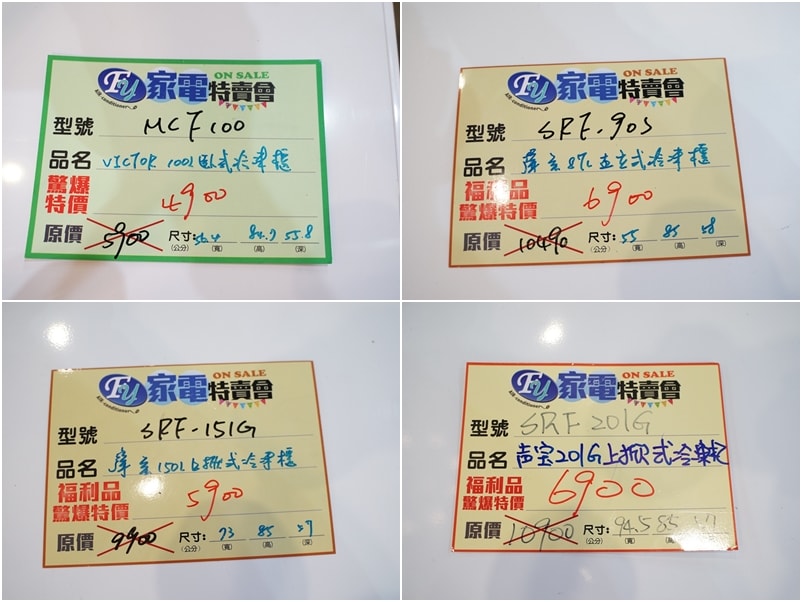 FU 家電 ON SALE 特賣會
型號 MCF100
品名 VICTOR 100L臥式冷凍櫃
驚爆特價 4900
原價 5900 尺寸: 56.4 84.7 55.8
(公分) (寬) (高) (深)
FU 家電 ON SALE 特賣會
型號 SRF-90S
品名 87L直立式冷凍櫃
福利品
驚爆特價 6900
原價 10490 尺寸: 55 85 58
(公分) (寬) (高) (深)
FU 家電 ON SALE 特賣會
型號 SRF-151G
品名 150L上掀式冷凍櫃
福利品
驚爆特價 5900
原價 9900 尺寸: 73 85 57
(公分) (寬) (高) (深)
FU 家電 ON SALE 特賣會
型號 SRF201G
品名 声宝201G上掀式冷凍櫃
福利品
驚爆特價 6900
原價 10900 尺寸: 94.5 85
(公分) (寬) (高) (深)